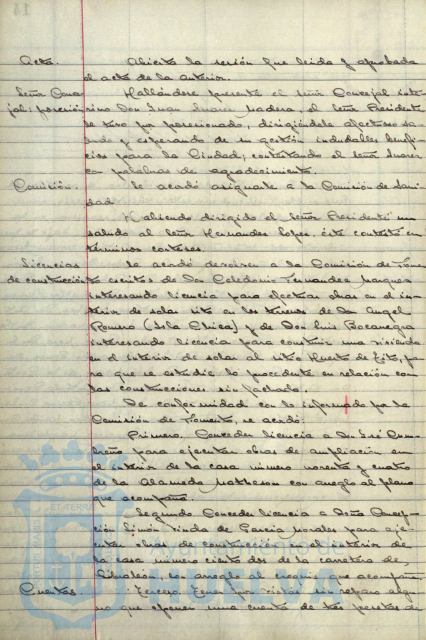 Acta. Abierta la sesión fue leida y aprobada
el acta de la anterior.
Señor Conce- Hallándose presente el señor Concejal inte-
jal; posesión rino Don Juan Suarez Madera, el Señor Presidente
le tuvo por posesionado, dirigiéndole afectuoso sa-
ludo y esperando de su gestión indudables benefi-
cios para la Ciudad; contestando el señor Suarez
con palabras de agradecimiento.
Comisión. Se acordó asignarle a la Comisión de Sani-
dad.
Habiendo dirigido el Señor Presidente un
saludo al Señor Hernandez Lopez, éste contestó en
términos corteses.
Licencias Se acordó devolver a la Comisión de Fomen-
de construcción to escritos de Don Celedonio Fernandez Marquez
interesando licencia para efectuar obras en el in-
terior de solar sito en los terrenos de Don Angel
Romero (Isla Chica) y de Don Luis Bocanegra
interesando licencia para construir una vivienda
en el interior de solar al sitio Huerto de, pa-
ra que se estudie lo procedente en relación con
las construcciones sin fachada.
De conformidad con lo informado por la
Comisión de Fomento, se acordó:
Primero. Conceder licencia a Don José
para ejecutar obras de ampliación en
el interior de la casa número noventa y cuatro
de la Alameda Matheson con arreglo al plano
que acompaña.
Segundo Conceder licencia a Doña Concep-
ción Limón viuda de Garcia Morales para eje-
cutar obras de construcción en el interior de
la casa número ciento dos de la carretera de
Gibraleon, con arreglo al croquis que acompaña.
Cuentas. Tercero. Tener por vistas sin reparo algu-
no que oponer una cuenta de tres pesetas de
Ayuntamiento de
HUELVA